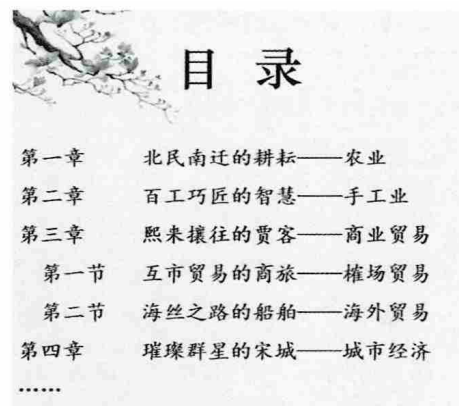 目 录
第一章 北民南迁的耕耘——农业
第二章 百工巧匠的智慧——手工业
第三章 熙来攘往的贾客——商业贸易
第一节 互市贸易的商旅——榷场贸易
第二节 海丝之路的船舶——海外贸易
第四章 璀璨群星的宋城——城市经济
……